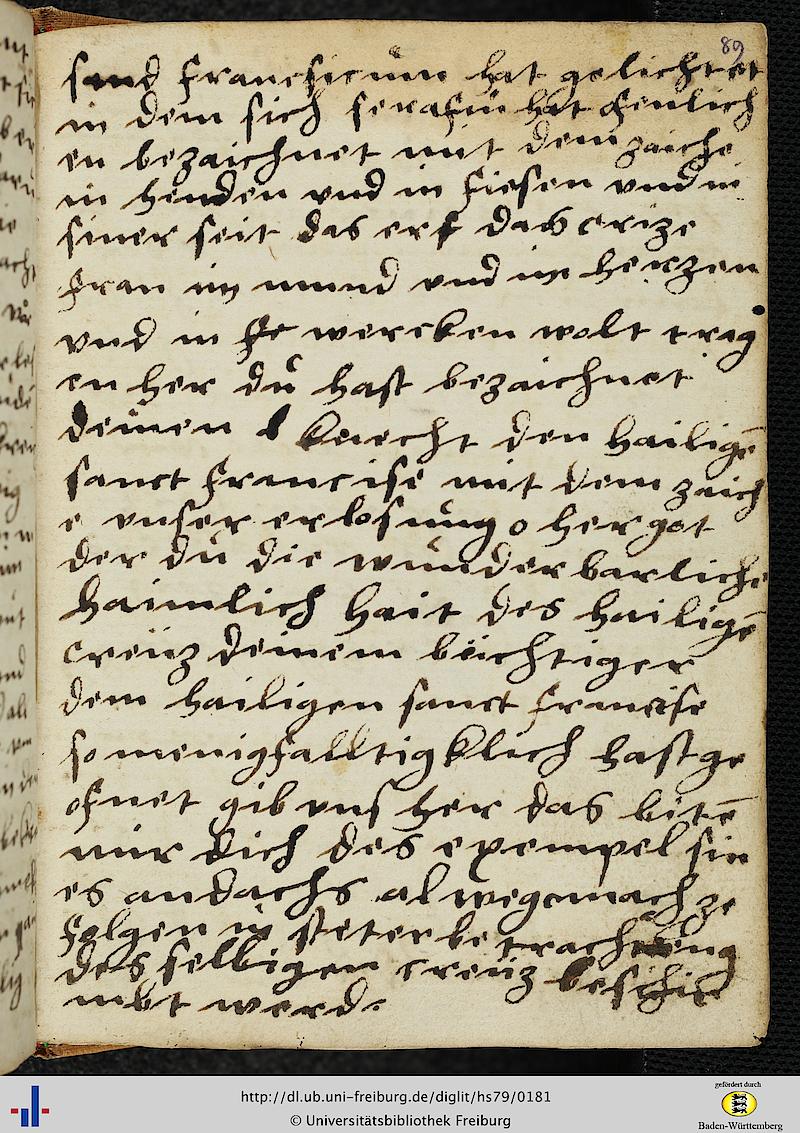 89
sand francsicüm hat gelichtet
in dem sich serafin hat fenlich
en bezaichnet mit dem zaiche
in henden vnd in fiesen vnd in
siner seit das er f das creize
fran im mund vnd im herzen
vnd in wercken wolt trag
en her dü hast bezaichnet
deinen knecht den hailigē
sanct francise mit dem zaich
e vnser erlosüng o her got
der dü die wunderbarliche
haimlich hait des hailigē
creüz deinem büchtiger
dem hailigen sanct francise
so menigfalltigklich hast ge
ofnet gib vns her das bitē
mir dich des exempel sin
es andachs alwegen nach ze
folgen in steter betrachtung
des selbigen creüz
mbt werd.
http://dl.ub.uni-freiburg.de/diglit/hs79/0181
© Universitätsbibliothek Freiburg
gefördert durch
Baden-Württemberg